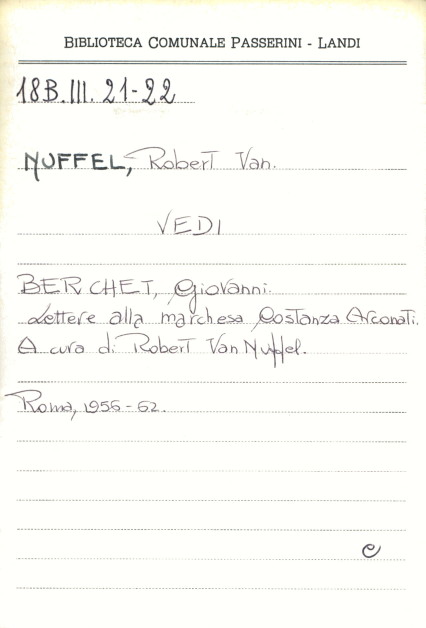 BIBLIOTECA COMUNALE PASSERINI - LANDI
18B.III. 21-22
NUFFEL, Robert Van.
VEDI
BERCHET, Giovanni.
Lettere alla marchesa Costanza Arconati.
A cura di Robert Van Nuffel.
Roma, 1956-62.
e